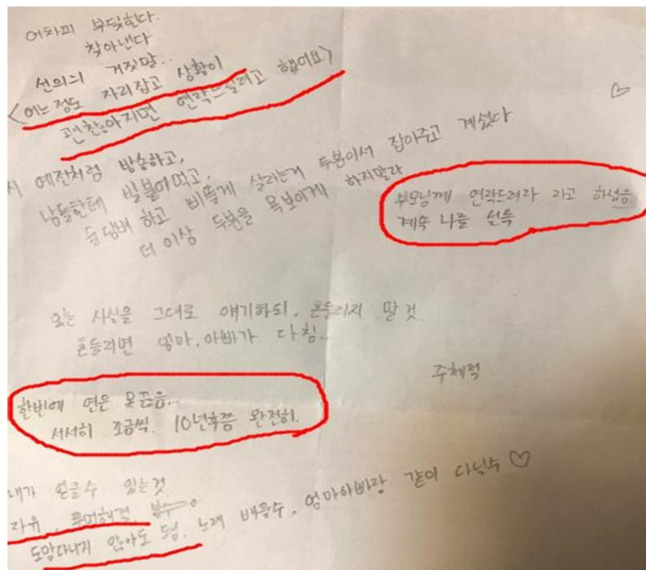 어차피 부딪힌다.
찾아낸다
선의의 거짓말..
<어느정도 자리잡고 상황이
괜찮아지면 연락드릴려고 했어요>
♡
시 예전처럼 방송하고,
남들한테 빌붙어먹고,
술담배 하고 삐뚤게 살라는거 두분이서 잡아주고 계셨다
더 이상 두분을 욕보이게 하지말라
부모님께 연락드려라 라고 하셨음
계속 나를 설득
있는 사실을 그대로 얘기하되, 흔들리지 말 것
흔들리면 엄마,아빠가 다침..
주체적
한번에 연은 못끊음..
서서히 조금씩. 10년후쯤 완전히.
내가 얻을수 있는것
자유, 루머해결,
도망다니지 않아도 됨. 노래 배울수, 엄마아빠랑 같이 다닐수 ♡